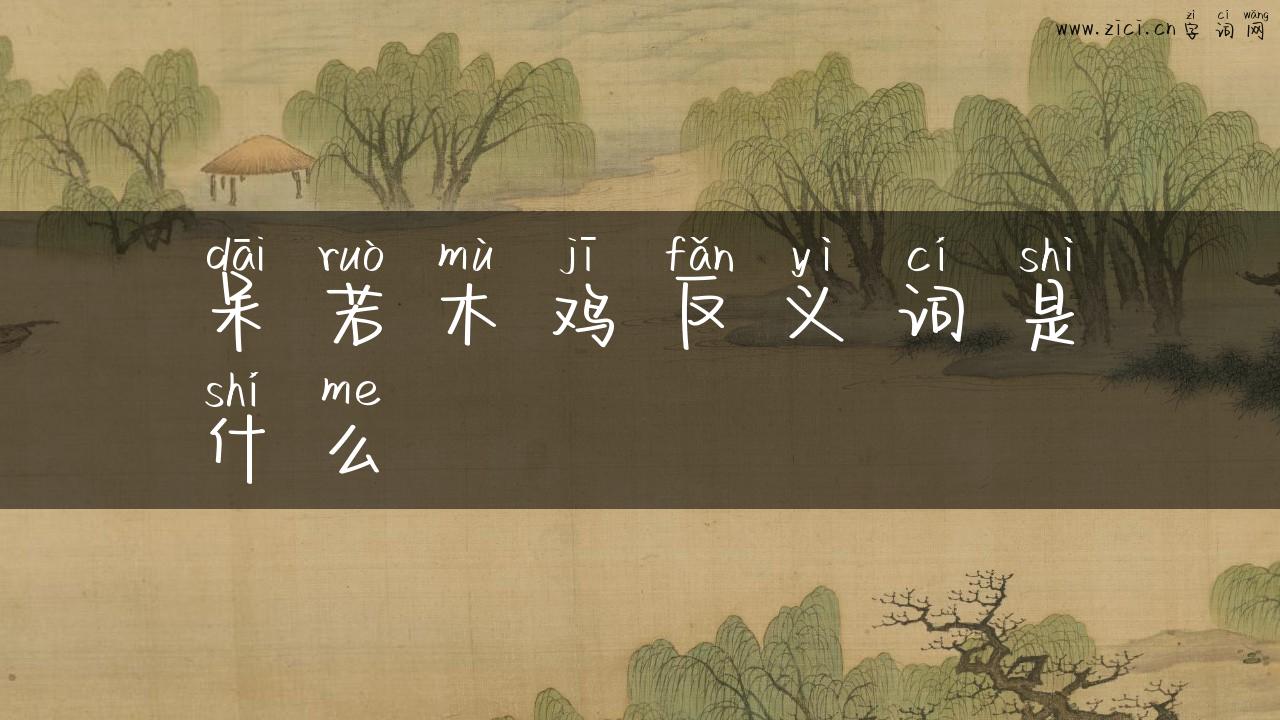 zì cí wǎng
www.zici.cn 字词网
dāi ruò mù jī fǎn yì cí shì
呆若木鸡反义词是
shí me
什么